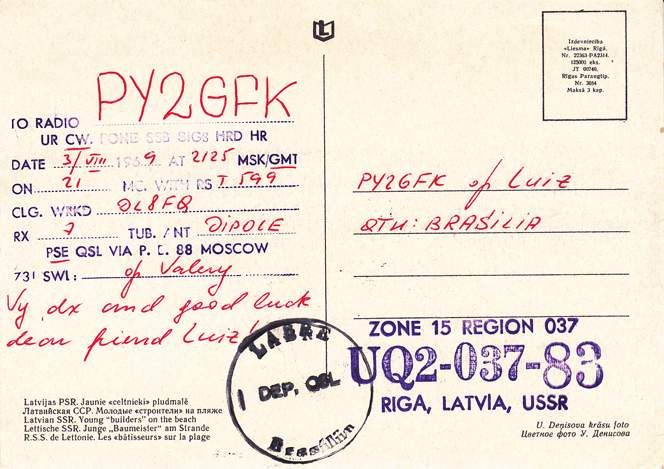 Izdevniecība
«Liesma» Rīgā.
Nr. 22363-PA2314.
125000 eks.
JT 00740.
Rīgas Paraugtip.
Nr. 3084
Maksā 3 kap.
PY2GFK
TO RADIO
UR CW, FONE SSB SIGS HRD HR
DATE 3/VIII 1969 AT 2125 MSK/GMT
ON 21 MC. WITH RST 599
CLG. WRKD DL8FQ
RX 7 TUB. ANT DIPOLE
PSE QSL VIA P. B. 88 MOSCOW
73! SWL: op Valery
Vy dx and good luck
dear friend Luiz!
PY2GFK op Luiz
QTH: BRASILIA
ZONE 15 REGION 037
UQ2-037-83
RIGA, LATVIA, USSR
LABRE
DEP. QSL
Brasília
Latvijas PSR. Jaunie «celtnieki» pludmalē
Латвийская ССР. Молодые «строители» на пляже
Latvian SSR. Young "builders" on the beach
Lettische SSR. Junge „Baumeister" am Strande
R.S.S. de Lettonie. Les «bâtisseurs» sur la plage
U. Deņisova krāsu foto
Цветное фото У. Денисова